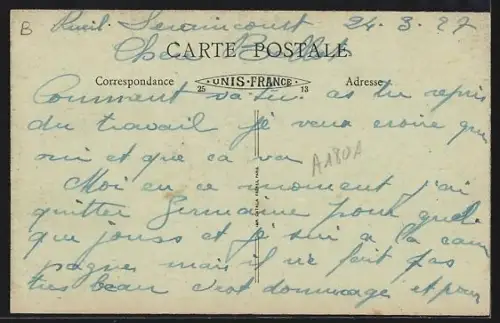 B
Rueil. Seraincourt 24-3-27
Cher
CARTE POSTALE
Correspondance UNIS-FRANCE Adresse
25 13
Comment va-tu. as tu repris
du travail je veux croire que
oui et que ca va
A180A
Moi en ce moment j'ai
quitter Germaine pour quel-
que jours et je suis a la cam
pagne mais il ne fait pas
tres beau c'est dommage et pour